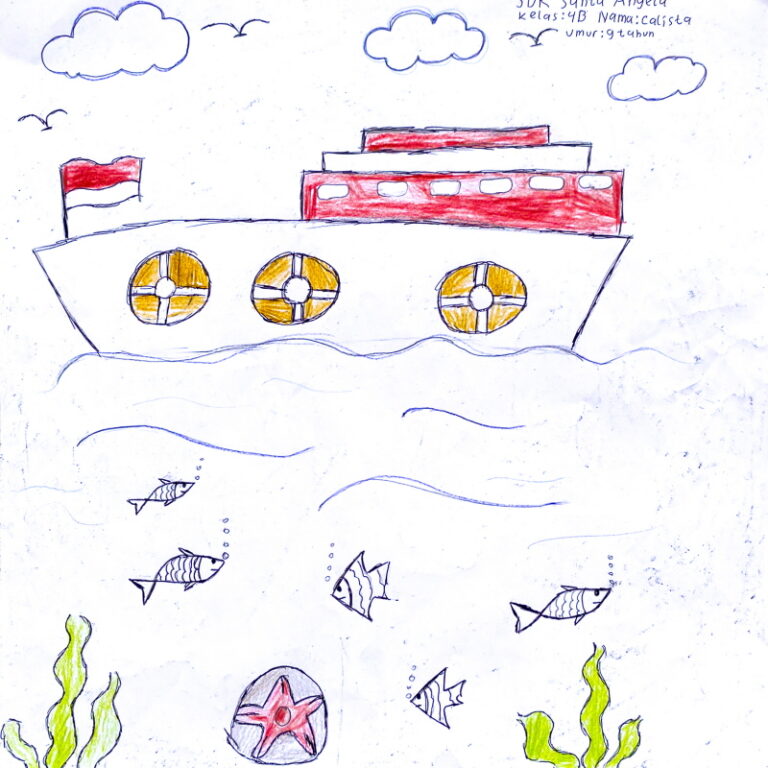 SDK Santa Angela
kelas:4B Nama:Calista
umur:9tahun